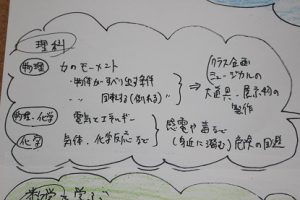 理科
物理 力のモーメント
・物体がすべり出す条件
〃 回転する(倒れる)〃
⇒ クラス企画
ミュージカルの
大道具・展示物の
製作
物理・化学 電気とエネルギー
化学 気体、化学反応など
感電や毒など
(身近に潜む)危険の回題
数学
学ぶ